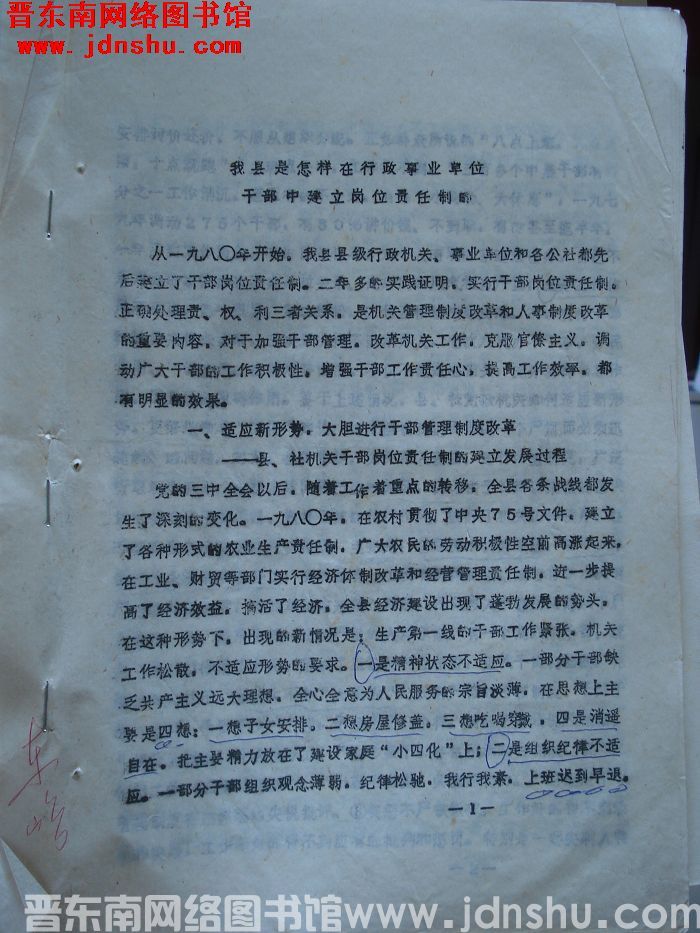 晋东南网络图书馆
www.jdnshu.com
我县是怎样在行政事业单位
干部中建立岗位责任制的
从一九八〇年开始，我县县级行政机关、事业单位和各公社都先
后建立了干部岗位责任制。二年多的实践证明，实行干部岗位责任制，
正确处理责、权、利三者关系，是机关管理制度改革和人事制度改革
的重要内容，对于加强干部管理，改革机关工作，克服官僚主义，调
动广大干部的工作积极性，增强干部工作责任心，提高工作效率，都
有明显的效果。
一、适应新形势，大胆进行干部管理制度改革
——县、社机关干部岗位责任制的建立发展过程
党的三中全会以后，随着工作着重点的转移，全县各条战线都发
生了深刻的变化。一九八〇年，在农村贯彻了中央75号文件，建立
了各种形式的农业生产责任制，广大农民的劳动积极性空前高涨起来，
在工业、财贸等部门实行经济体制改革和经营管理责任制，进一步提
高了经济效益，搞活了经济，全县经济建设出现了蓬勃发展的势头。
在这种形势下，出现的新情况是：生产第一线的干部工作紧张，机关
工作松散，不适应形势的要求。一是精神状态不适应。一部分干部缺
乏共产主义远大理想，全心全意为人民服务的宗旨淡薄，在思想上主
要是四想：一想子女安排，二想房屋修盖，三想吃喝穿戴，四是消遥
自在。把主要精力放在了建设家庭“小四化”上；二是组织纪律不适
应。一部分干部组织观念薄弱，纪律松驰，我行我素，上班迟到早退。
—1—
晋东南网络图书馆www.jdnshu.com